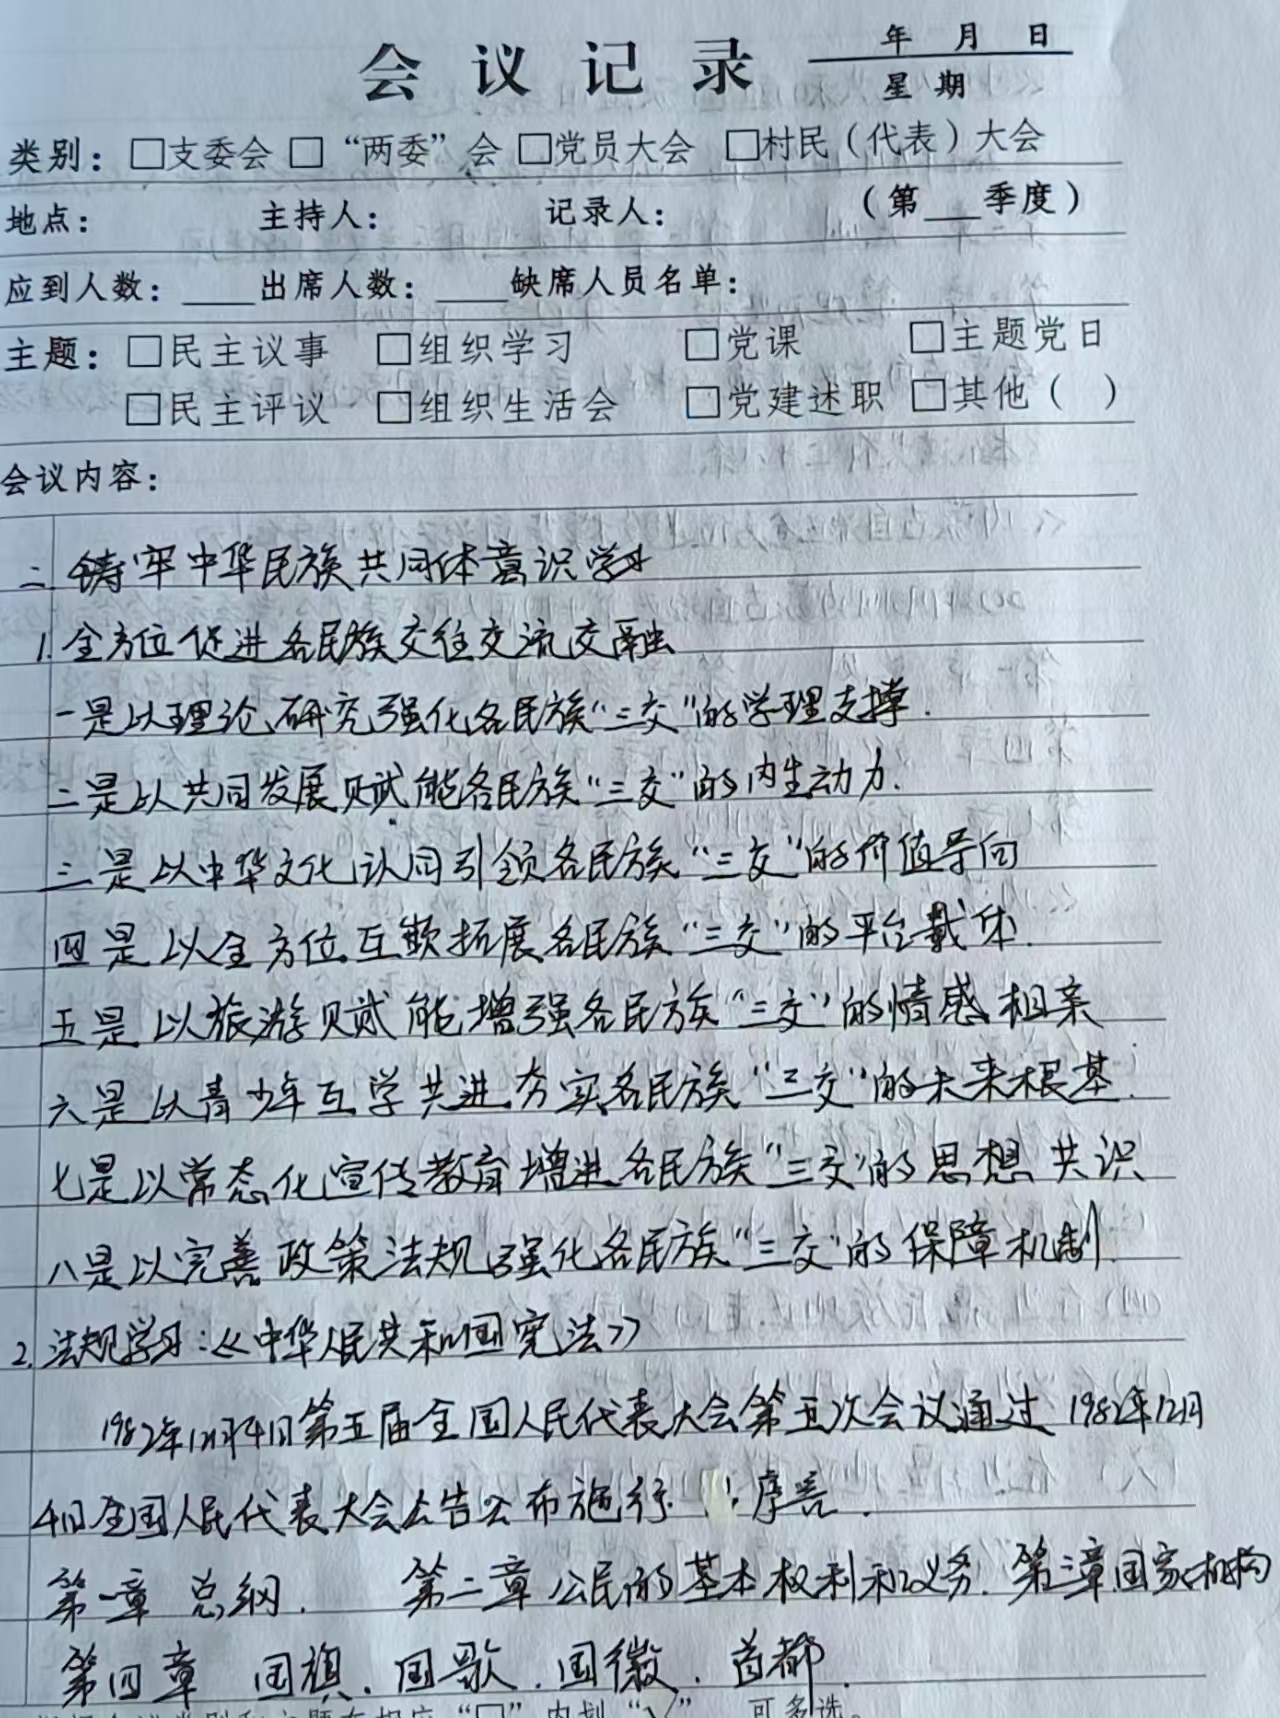 会议记录
年 月 日
星 期
类别：□支委会 □“两委”会 □党员大会 □村民（代表）大会
地点： 主持人： 记录人： （第___季度）
应到人数：____出席人数：____缺席人员名单：
主题：□民主议事 □组织学习 □党课 □主题党日
□民主评议 □组织生活会 □党建述职 □其他（ ）
会议内容：
二. 铸牢中华民族共同体意识学习
1. 全方位促进各民族交往交流交融
一是以理论研究强化各民族“三交”的学理支撑.
二是以共同发展赋能各民族“三交”的内生动力.
三是以中华文化认同引领各民族“三交”的价值导向
四是以全方位互嵌拓展各民族“三交”的平台载体.
五是以旅游赋能增强各民族“三交”的情感相亲
六是以青少年互学共进夯实各民族“三交”的未来根基.
七是以常态化宣传教育增进各民族“三交”的思想共识
八是以完善政策法规强化各民族“三交”的保障机制.
2. 法规学习:《中华人民共和国宪法》
1982年12月4日第五届全国人民代表大会第五次会议通过 1982年12月
4日全国人民代表大会公告公布施行 序言.
第一章 总纲. 第二章 公民的基本权利和义务. 第三章国家机构
第四章 国旗.国歌.国徽.首都.
“□”内划“√” 可多选。